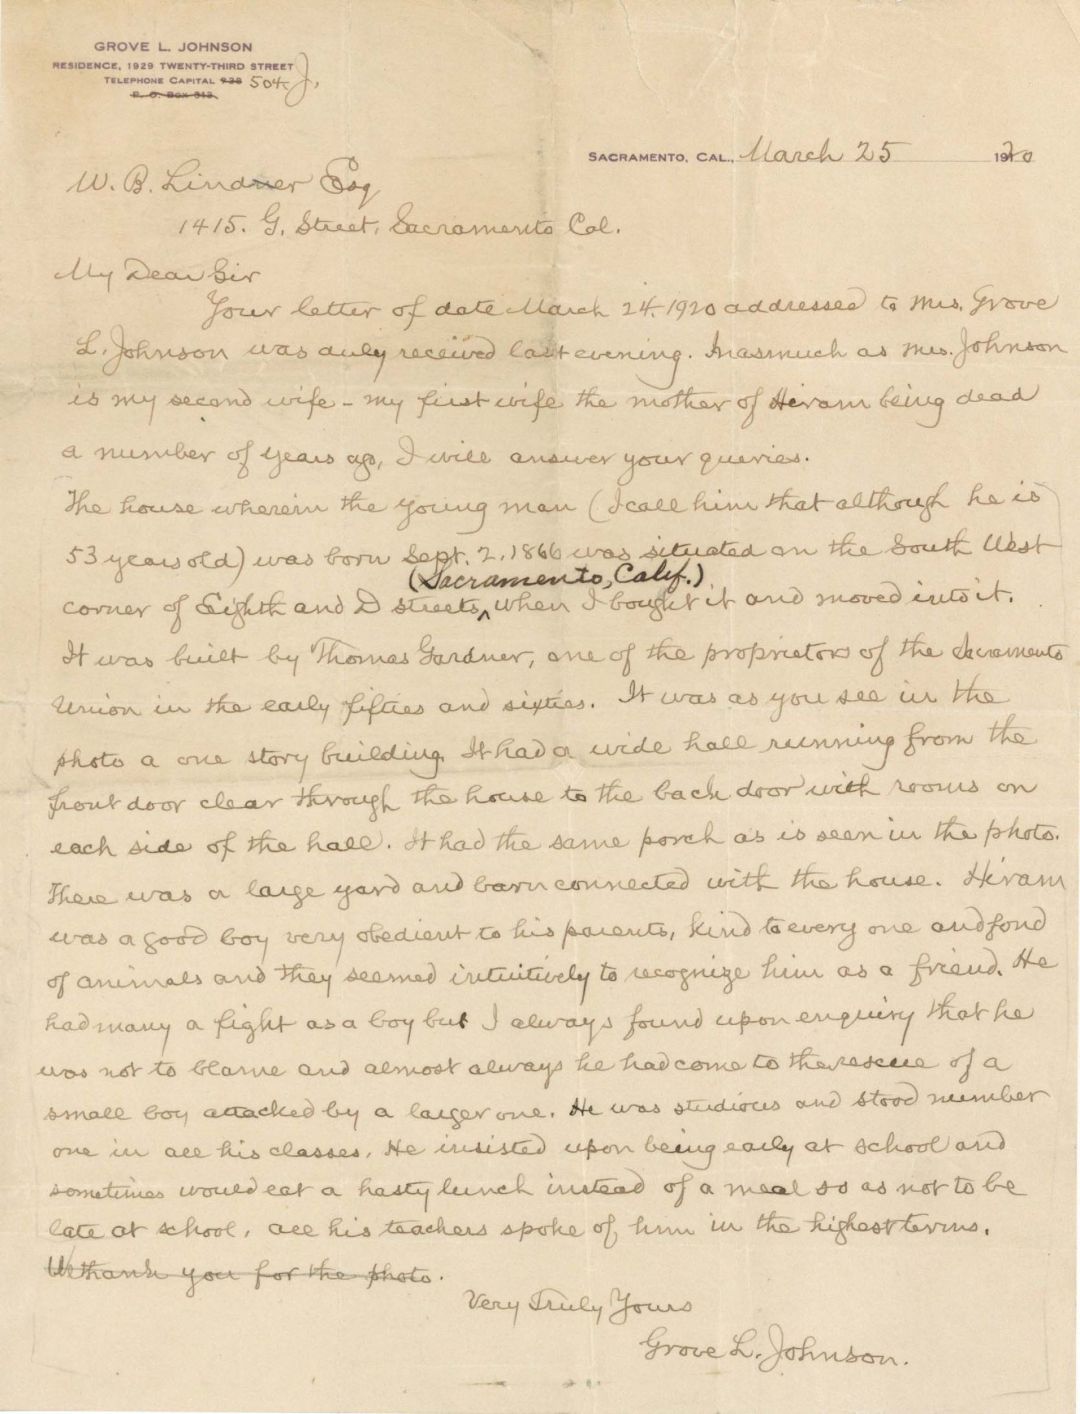 GROVE L. JOHNSON
RESIDENCE, 1929 TWENTY-THIRD STREET
TELEPHONE CAPITAL 938 504 J.
P. O. BOX 313.
SACRAMENTO, CAL., March 25 1920
W. B. Lindner Esq
1415. G. Street. Sacramento Cal.
My Dear Sir
Your letter of date March 24. 1920 addressed to Mrs. Grove
L. Johnson was duly received last evening. Inasmuch as Mrs. Johnson
is my second wife – my first wife the mother of Hiram being dead
a number of years ago, I will answer your queries.
The house wherein the young man (I call him that although he is
53 years old) was born Sept. 2, 1866 was situated on the South West
(Sacramento, Calif.)
corner of Eighth and D streets, when I bought it and moved into it.
It was built by Thomas Gardner, one of the proprietors of the Sacramento
Union in the early fifties and sixties. It was as you see in the
photo a one story building. It had a wide hall running from the
front door clear through the house to the back door with rooms on
each side of the hall. It had the same porch as is seen in the photo.
There was a large yard and barn connected with the house. Hiram
was a good boy very obedient to his parents, kind to every one and fond
of animals and they seemed intuitively to recognize him as a friend. He
had many a fight as a boy but I always found upon enquiry that he
was not to blame and almost always he had come to the rescue of a
small boy attacked by a larger one. He was studious and stood number
one in all his classes. He insisted upon being early at school and
sometimes would eat a hasty lunch instead of a meal so as not to be
late at school. all his teachers spoke of him in the highest terms.
We thank you for the photo.
Very Truly Yours
Grove L. Johnson.